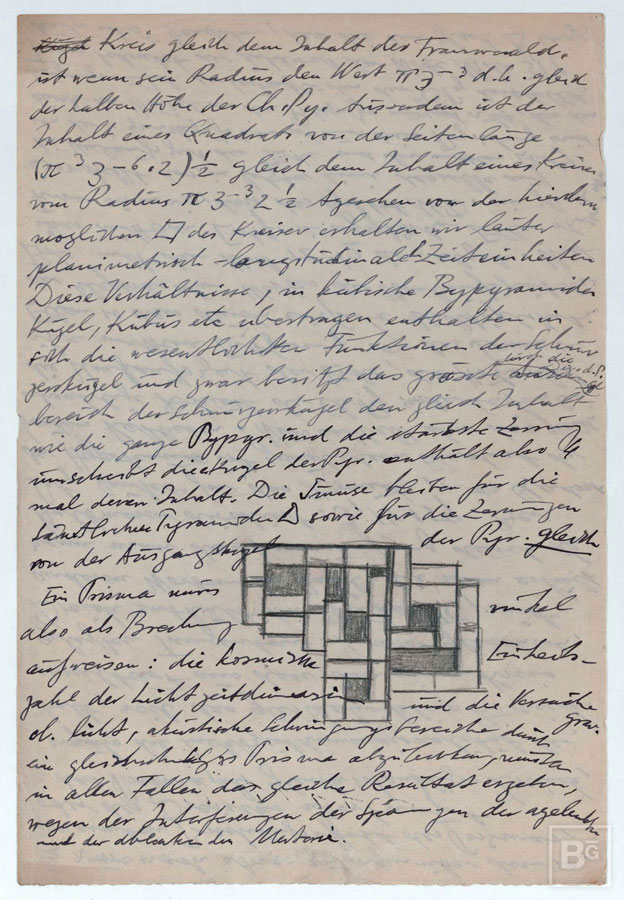 Kreis gleich dem Inhalt des
ist wenn sein Radius den Wert π 3⁻³ d.h. gleich
der halben Höhe der Ch. Py. Ausserdem ist der
Inhalt eines Quadrats von der Seitenlänge
(π³ 3⁻⁶·2)½ gleich dem Inhalt eines Kreises
vom Radius π 3⁻³ 2½ Abgesehen von der
möglichen □ des Kreises erhalten wir lauter
planimetrisch - Zeiteinheiten
Diese Verhältnisse, in kubische Bypyramiden
Kugel, Kubus etc übertragen enthalten in
sich die wesentlichsten Funktionen der
und zwar besitzt das grösste
bereich der den gleich Inhalt
wie die ganze Bypyr. und die stärkste Zerrung
umschreibt die Kugel der Pyr. enthält also 4
mal deren Inhalt. Die bleiben für die
sämtlichen Pyramiden sowie für die Zerrungen
von der Ausgangskugel der Pyr. gleich
Ein Prisma muss winkel
also als Brechung
aufweisen: die kosmische Einheits-
zahl der Lichtzeitdimension und die Versuche
d. Licht, akustische Schwingungsbereiche durch grav.
ein gleichschenkliges Prisma abzulenken, müssen
in allen Fällen das gleiche Resultat ergeben,
wegen der Interferenzen der der
und der Materie.
BG